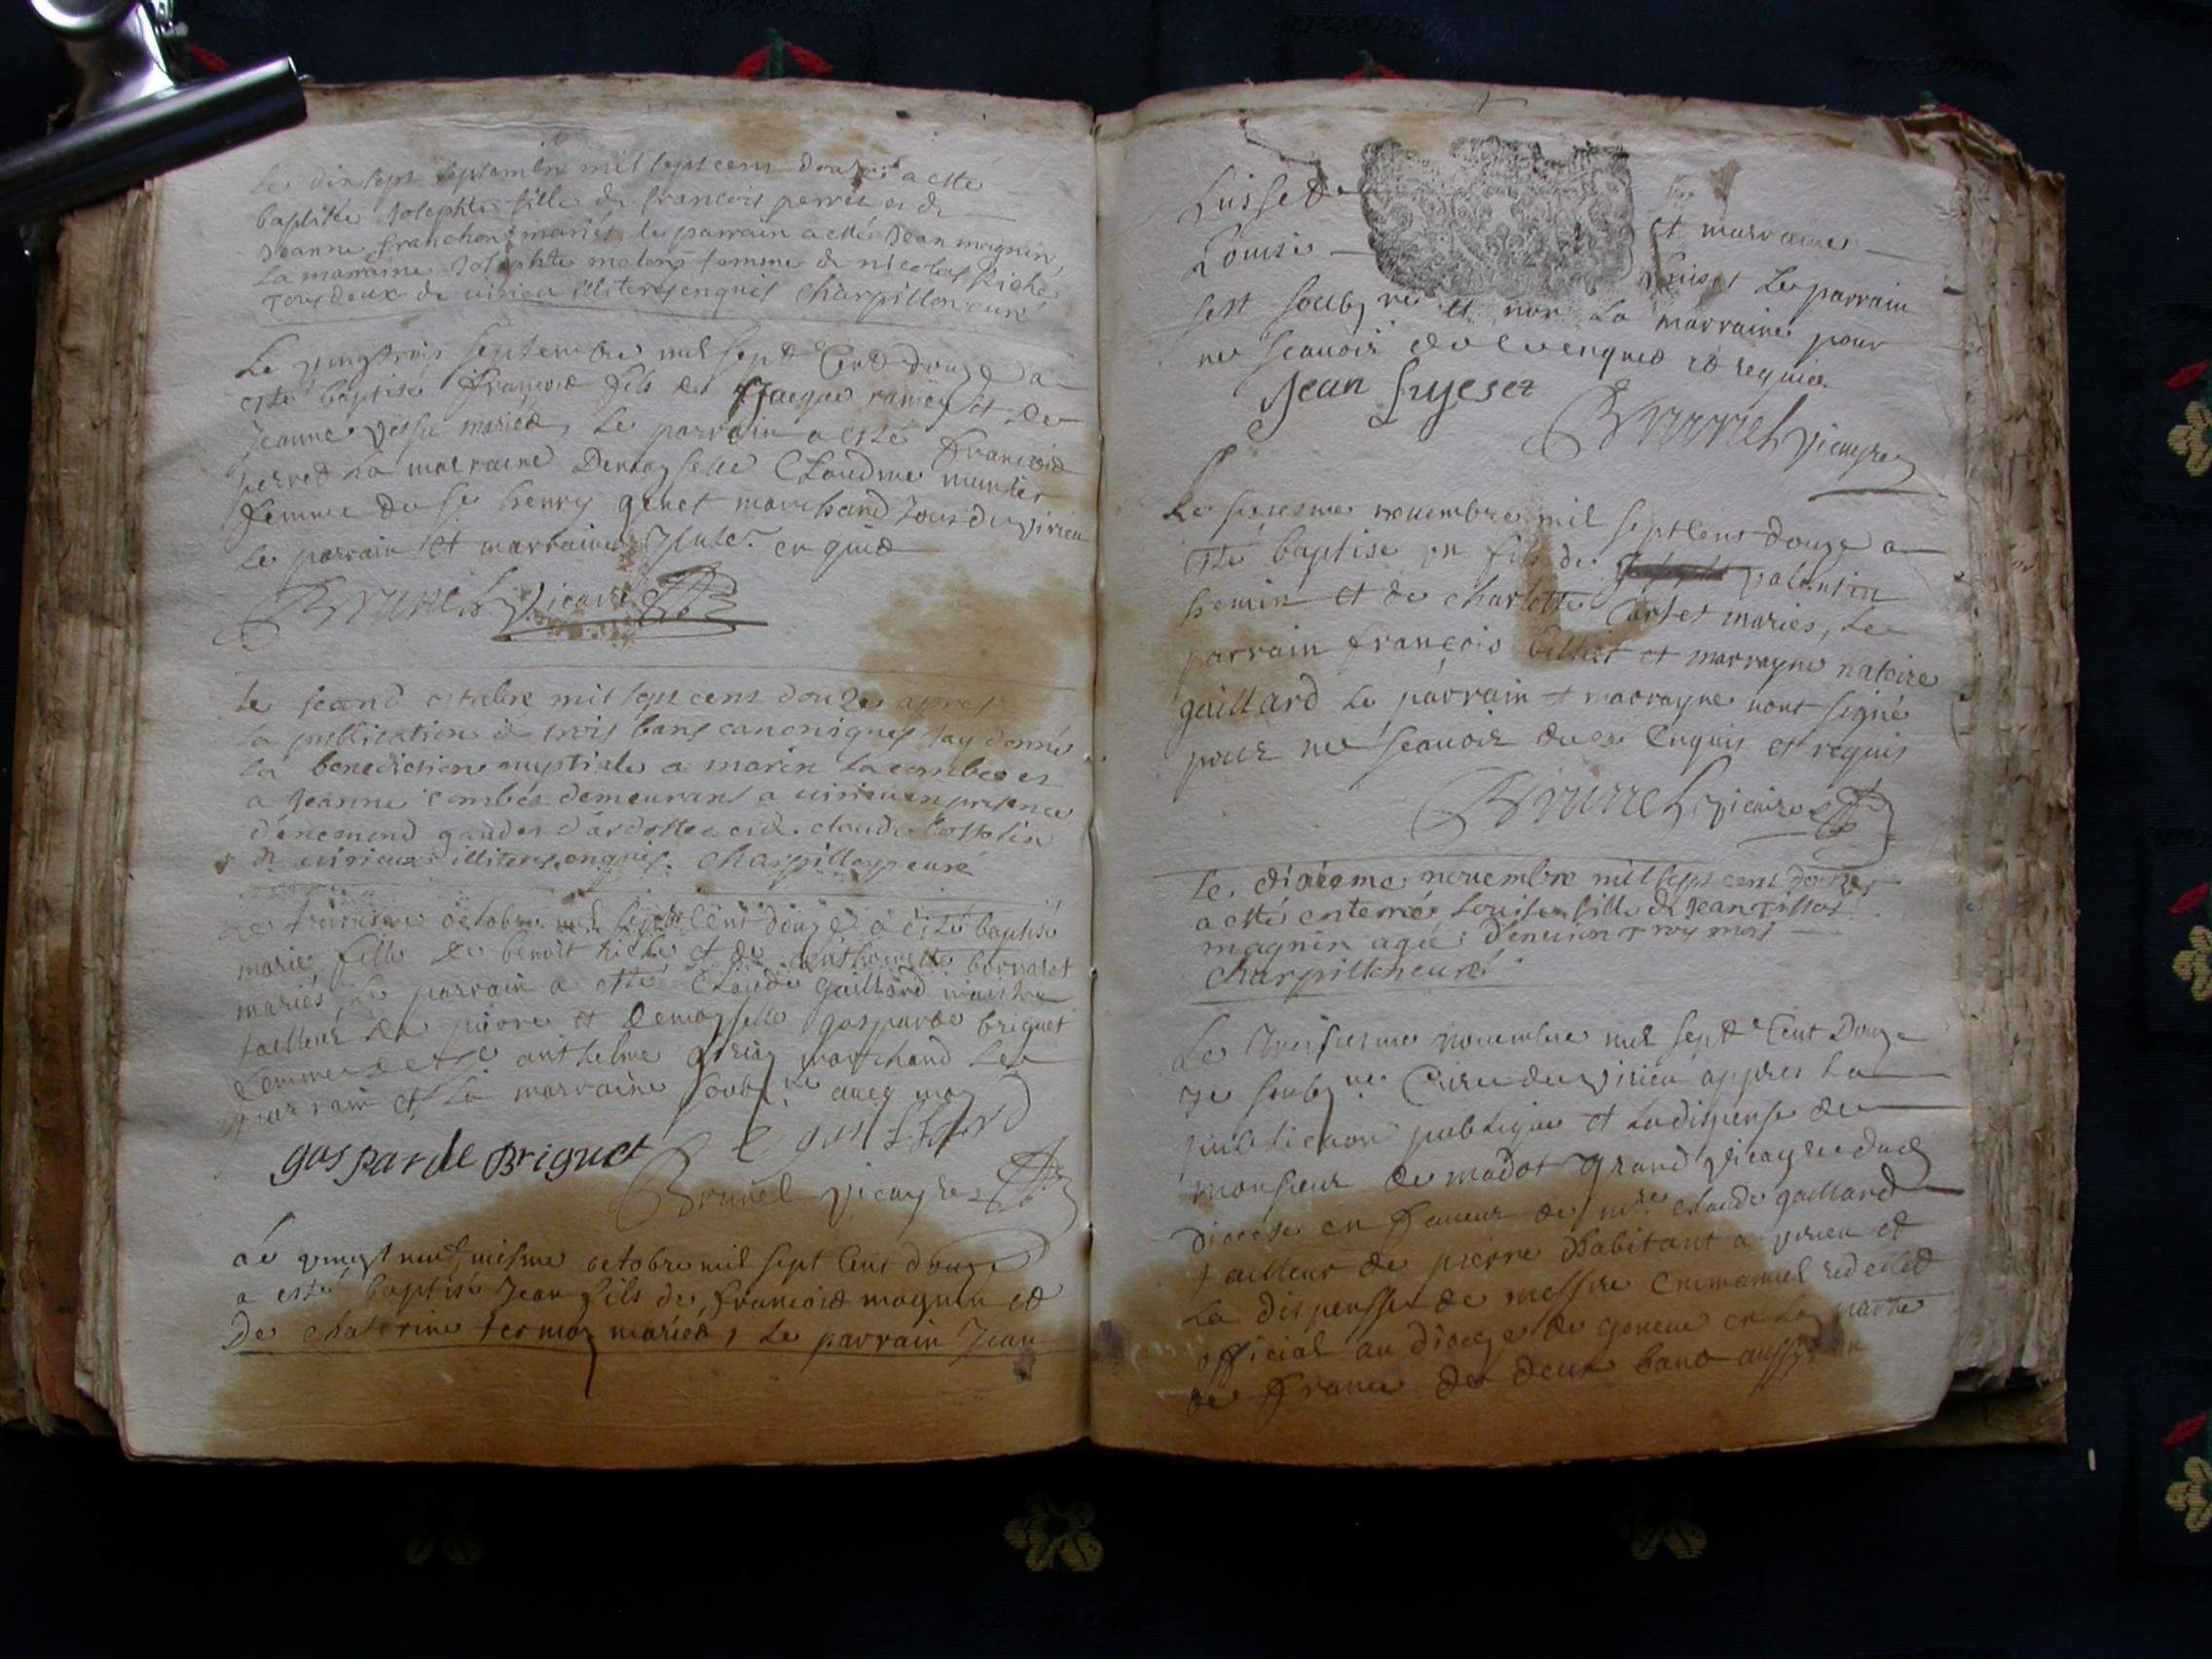 le dix sept septembre mil sept cens douze a esté
baptisée Josephte fille de francois perret et de
Jeanne franchon mariés le parrain a esté Jean magnin
La marraine Josephte femme de nicolas Riche
Tous deux de virieu illiterés enquis Charpillon curé
Le vingt trois septembre mil sept Cent douze a
esté baptisé François fils de Jacque et de
Jeanne mariés, Le parrain a esté François
perret La marraine Demoyselle Claudine munier
femme du sr henry genet marchand tous de virieu
Le parrain et marraine enquis
Brunel vicaire
Le second octobre mil sept cens douze apres
la publication de trois bans canoniques Jay donné
la benediction nuptiale a marin Lacombe et
a Jeanne Combes demeurans a virieu en presence
d'enemond et de claude
de virieux illiterés enquis. Charpillon curé
Le octobre mil sept Cent douze a esté baptisé
marie fille de benoit Riche et de bornaret
mariés, Le parrain a esté Claude gaillard maistre
tailleur de pierre et Demoyselle gasparde briguet
femme de sr anthelme marchand Le
parrain et la marraine soubsne avec moy
gasparde Briguet C gaillard
Brunel vicayre
Le vingt neufviesme octobre mil sept Cent douze
a esté baptisé Jean fils de François magnin et
De chaterine mariés, Le parrain Jean
Luisset
Louise et marraine
Luiset Le parrain
sest soubsne et non La marraine pour
ne scavoir de ce enquis et requise
Jean Luyset
Brunel vicayre
Le novembre mil sept Cent douze a
esté baptisé un fils de valentin
hemin et de charlotte mariés, Le
parrain françois billiet et marrayne
gaillard Le parrain et marrayne nont signé
pour ne scavoir de ce Enquis et requis
Brunel vicaire
Le dixieme novembre mil sept cens douze
a esté enterré Louise fille de Jean
magnin agée d'environ troys mois
Charpillon curé
Le novembre mil sept Cent Douze
Je soubsne Curé de virieu appres La
publication publique et La dispense de
monsieur de madot grand vicayre dud
Diocese en faveur de mre Claude gaillard
tailleur de pierre habitant a virieu et
La dispensse de messire Emmanuel
official au Diocese de geneve en La partie
de france de deux bans aussy